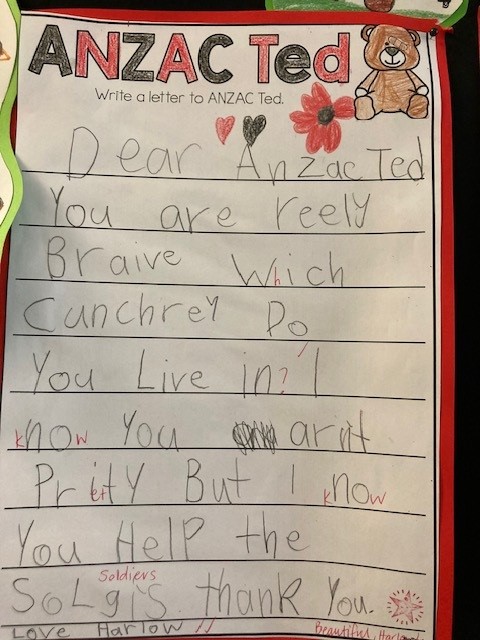 ANZAC Ted
Write a letter to ANZAC Ted.
Dear Anzac Ted
You are reely
Braive Which
Cunchrey Do
You Live in? I
know You arnt
PrietttY But I know
You HelP the
Soldiers
SoLgis thank You.
Love Harlow
Beautiful, Harlow!